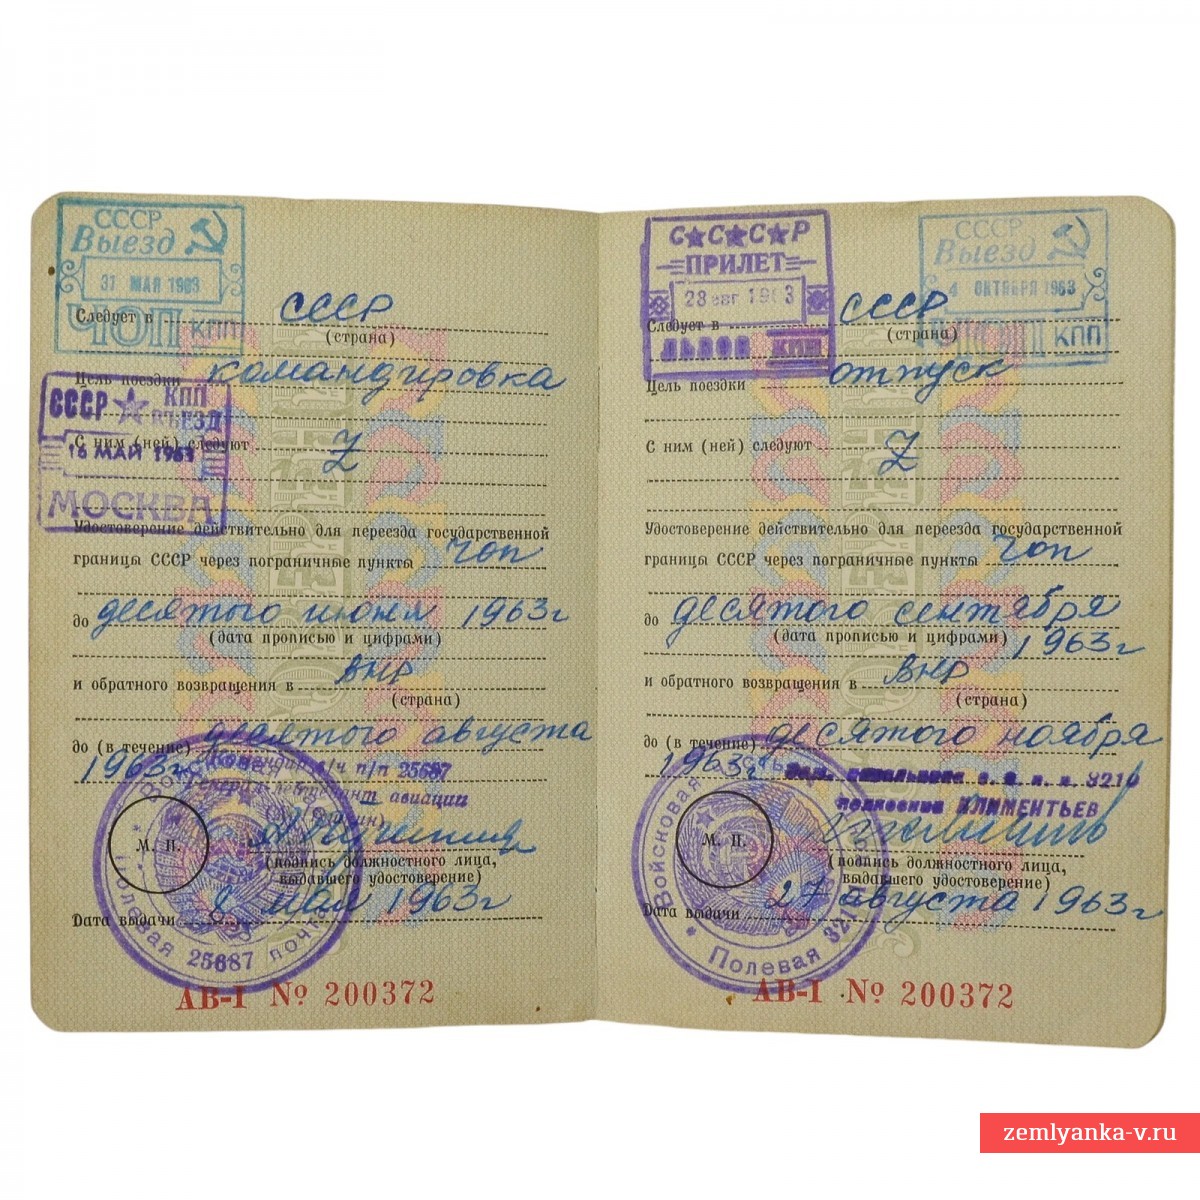 СССР
Выезд
31 МАЯ 1963
ЧОП КПП
Следует в СССР
(страна)
Цель поездки командировка
СССР КПП
ВЪЕЗД
16 МАЙ 1963
МОСКВА
С ним (ней) следуют Z
Удостоверение действительно для переезда государственной
границы СССР через пограничные пункты Чоп
до десятого июня 1963г
(дата прописью и цифрами)
и обратного возвращения в ВНР
(страна)
до (в течение) десятого августа
1963г.
в/ч п/п 25687
генерал-лейтенант авиации
М. П.
(подпись должностного лица,
выдавшего удостоверение)
Дата выдачи 8 мая 1963г
Войсковая
Полевая почта 25687
АВ-I № 200372
С С С Р
ПРИЛЕТ
28 авг 1963
ЛЬВОВ КПП
СССР
Выезд
4 ОКТЯБРЯ 1963
КПП
Следует в СССР
(страна)
Цель поездки отпуск
С ним (ней) следуют Z
Удостоверение действительно для переезда государственной
границы СССР через пограничные пункты Чоп
до десятого сентября
(дата прописью и цифрами) 1963г
и обратного возвращения в ВНР
(страна)
до (в течение) десятого ноября
1963г.
Зам. начальника в. п. п. 3216
полковник КЛИМЕНТЬЕВ
М. П.
(подпись должностного лица,
выдавшего удостоверение)
Дата выдачи 27 августа 1963г
Войсковая часть
Полевая
АВ-I № 200372
zemlyanka-v.ru